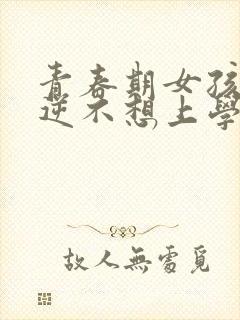 青春期女孩
逆不想上學
故人無處覓